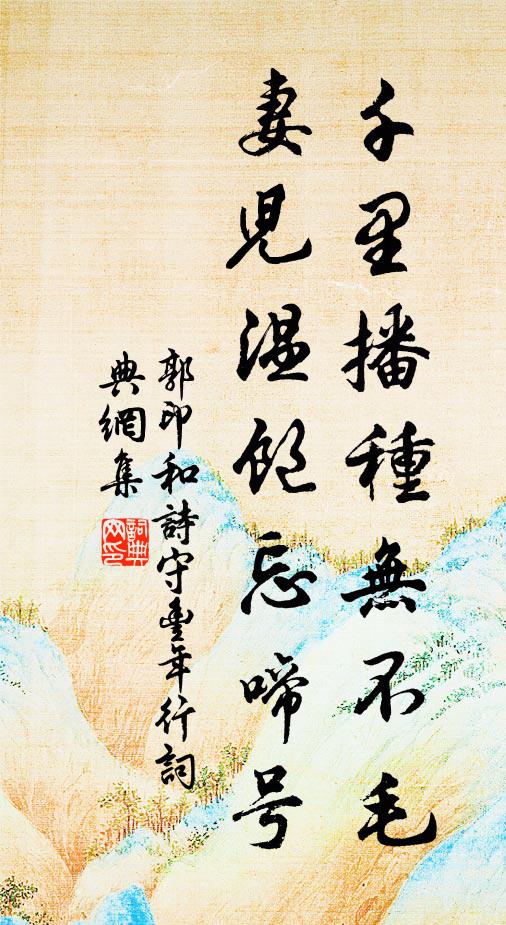 千里播種無不毛
妻児温飽忘啼号
郭印和詩守豊年行詞
典網集
詞典
网印